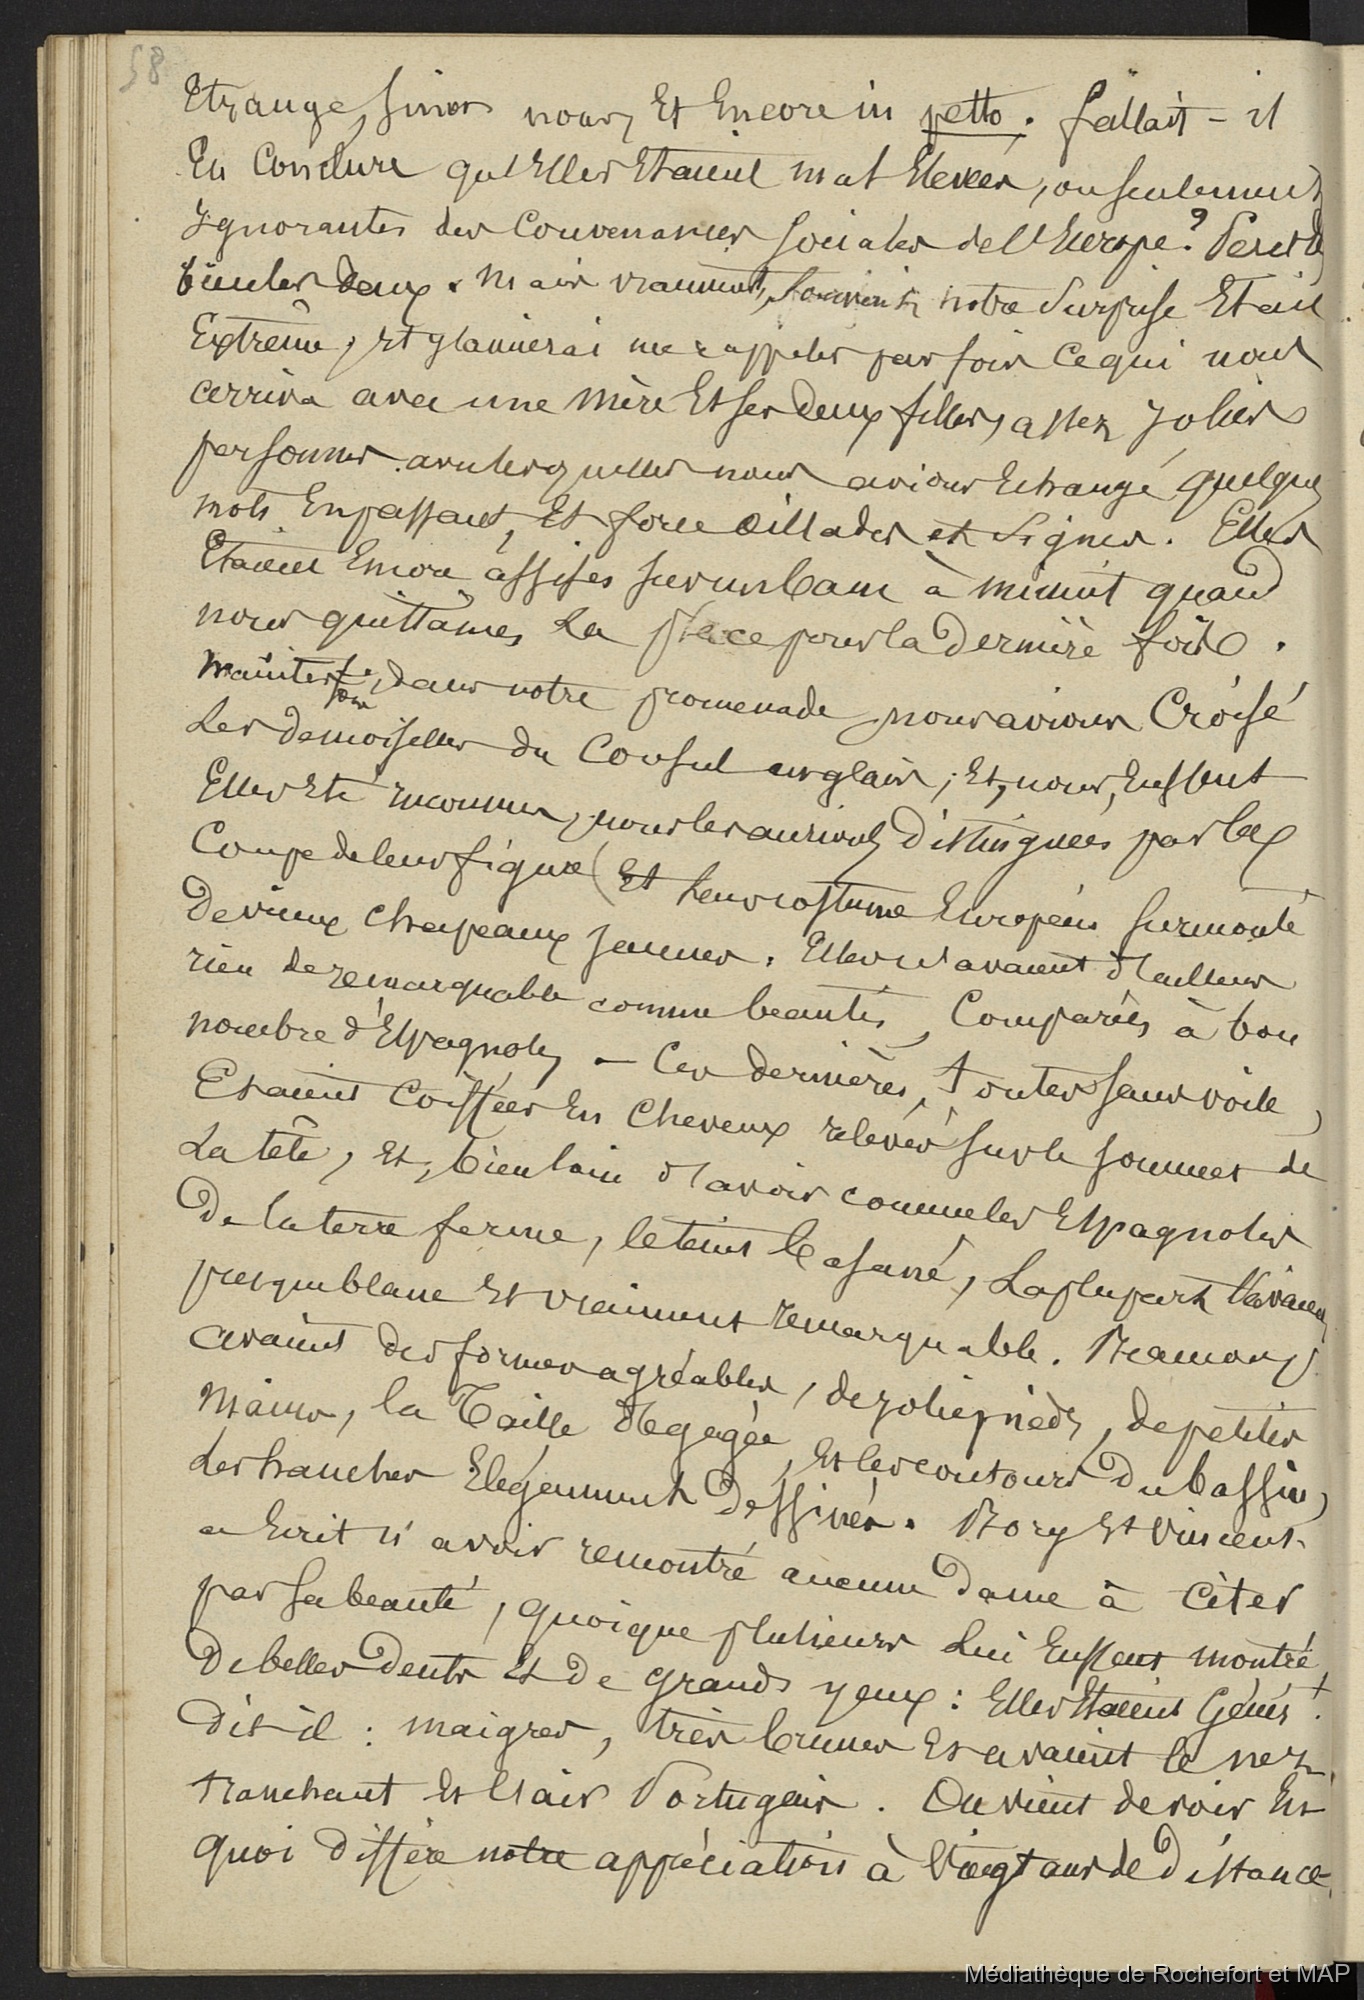 58
Etrange, sinon nous, Et Encore in petto. fallait-il
En Conclure qu'Elles Etaient mal Elevées, ou seulement
Ignorantes des Convenances sociales de l'Europe? Peut-
bien les Deux. Mais vraiment, souvent notre surprise Etait
Extrême, Et j'aimerai me rappeler parfois ce qui nous
arriva avec une mère Et ses Deux filles, assez jolies
personnes avec lesquelles nous avions Echangé quelques
mots En passant, Et force Œillades et signes. Elles
Etaient Encore assises sur un banc à minuit quand
nous quittâmes La place pour la Dernière fois.
Maintes fois, dans notre promenade nous avions Croisé
Les Demoiselles du Consul anglais; Et, nous, Eussent
Elles Eté inconnues, nous les aurions Distinguées par la
Coupe de leur figure (Et Leur costume Européen surmonté
De vieux chapeaux jaunes. Elles n'avaient d'ailleurs
rien de remarquable comme beautés, Comparées à bon
nombre d'Espagnoles – Ces dernières, toutes sans voile,
Etaient Coiffées En Cheveux relevés sur le sommet de
La tête, Et, bien loin d'avoir comme les Espagnoles
De la terre ferme, le teint basané, La plupart l'avaient
presque blanc Et vraiment remarquable. Beaucoup
avaient des formes agréables, de jolis pieds, de petites
Mains, la Taille Dégagée, Et les contours Du bassin,
Les hanches Elégamment Dessinés. Bory St Vincent
a Ecrit n'avoir rencontré aucune Dame à Citer
par sa beauté, quoique plusieurs Lui Eussent montré
De belles Dents Et De grands yeux: Elles Etaient Génért.
Dit-il: maigres, très brunes Et avaient le nez
tranchant Et l'air Portugais. On vient de voir En
quoi Diffère notre appréciation à Vingt ans de Distance.
Médiathèque de Rochefort et MAP